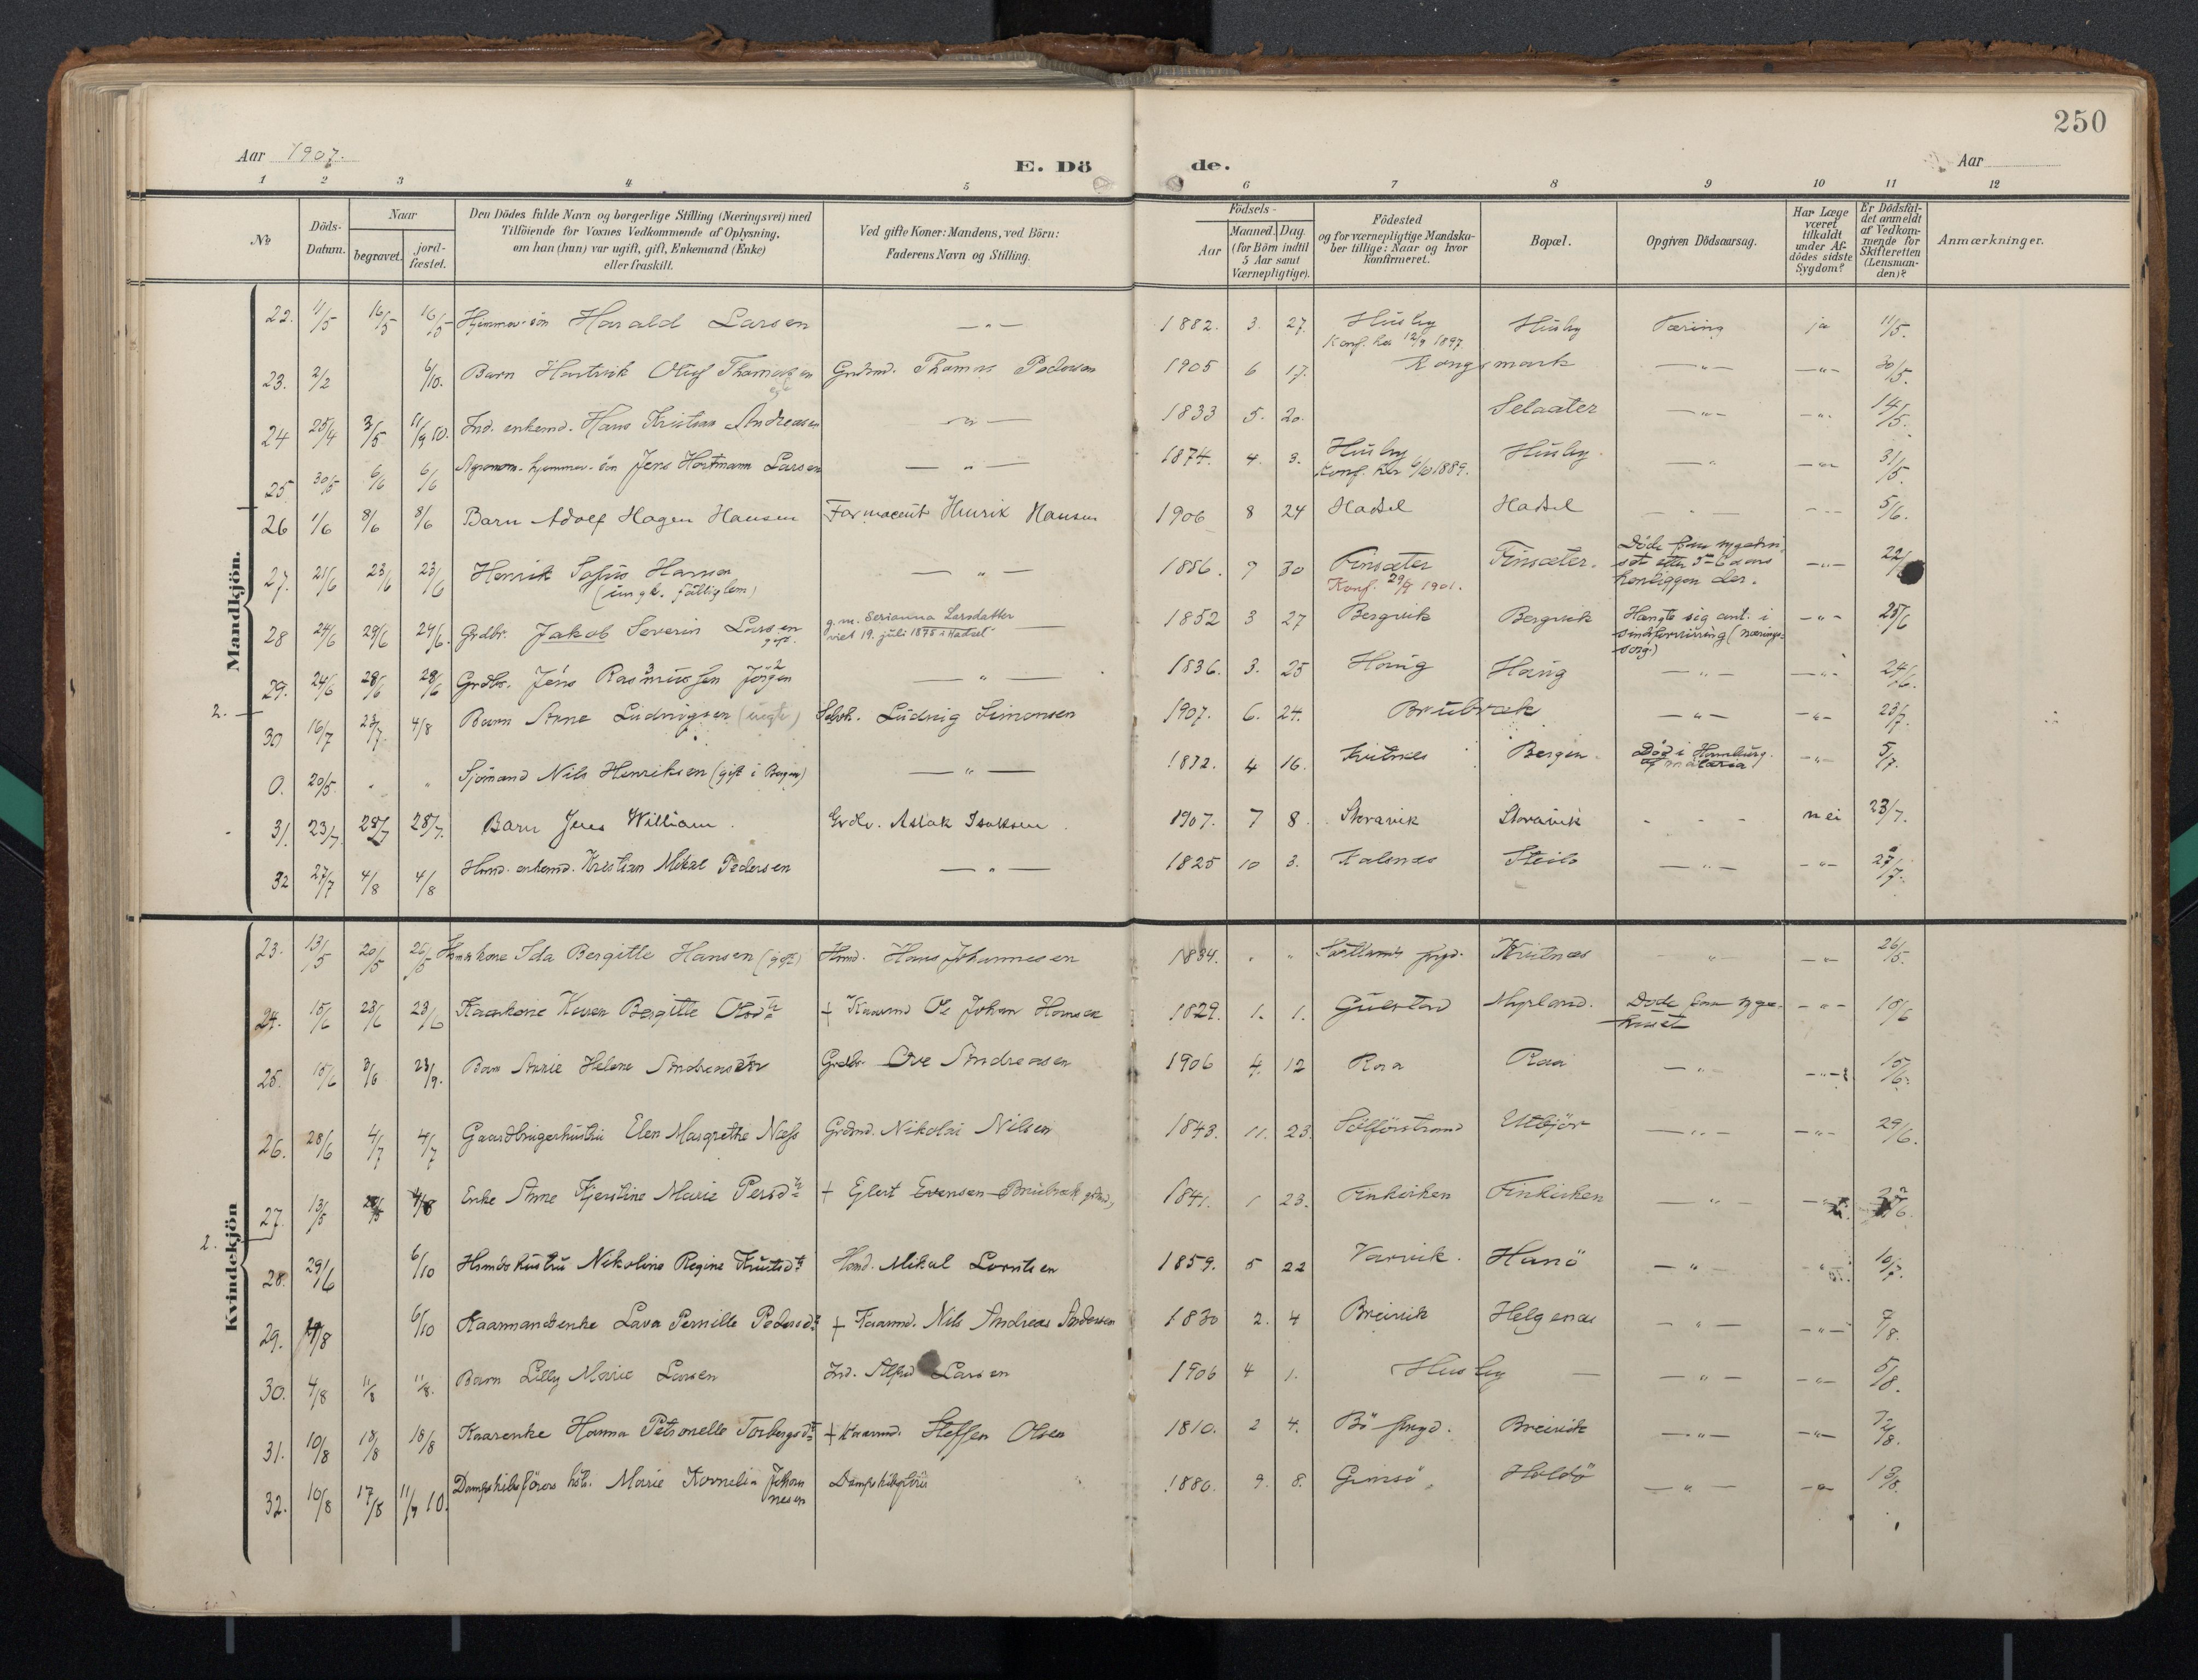 250
Aar 1907.
E. Dö de.
Aar
1 2 3 4 5 6 7 8 9 10 11 12
No
Döds-Datum.
Naar
begravet.
jord-fæstet.
Den Dödes fulde Navn og borgerlige Stilling (Næringsvei) med
Tilföiende for Voxnes Vedkommende af Oplysning,
om han (hun) var ugift, gift, Enkemand (Enke)
eller fraskilt.
Ved gifte Koner: Mandens, ved Börn:
Faderens Navn og Stilling.
Födsels-
Aar
Maaned. Dag.
(for Börn indtil
5 Aar samt
Værnepligtige).
Födested
og for værnepligtige Mandska-
ber tillige: Naar og hvor
konfirmeret.
Bopæl.
Opgiven Dödsaarsag.
Har Læge
været
tilkaldt
under Af-
dödes sidste
Sygdom?
Er Dödsfal-
det anmeldt
af Vedkom-
mende for
Skifteretten
(Lensman-
den)?
Anmærkninger.
Mandkjön.
22. 11/5 16/5 16/5 Harald Larsen — " — 1882. 3. 27. Husby Husby Tæring ja 11/5.
Konf. her 12/9 1897.
23. 2/2 6/10. Barn Hartvik Oluf Thomassen Grdmd. Thomas Pedersen 1905 6 17. Kongsmark — " — — " — 30/5.
24 25/4 3/5 11/9 10. Ind. enkemd. Hans Kristian Andreasen — " — 1833 5. 20. Selsæter — " — — " — 14/5.
25 30/5 6/6 6/6 Agronom. Jens Hartmann Larsen — " — 1874. 4. 3. Husby Husby. — " — — " — 31/5.
Konf. her 6/10 1889.
26 1/6 8/6 8/6 Barn Adolf Hagen Hansen Farmaceut Henrik Hansen 1906 8 24 Hadsel Hadsel — " — 5/6.
27. 21/6 23/6 23/6 Henrik Sofus Hansen — " — 1886. 9 30 Finsæter Finsæter. — " — 22/
(ungk. fattiglem) Konf. 29/9 1901.
28 24/6 29/6 29/6. Grdbr. Jakob Severin Larsen g. m. Serianna Larsdatter 1852 3 27 Bergvik Bergvik Hængte sig ant. i — " — 25/6
gift. viet 19. juli 1875 i Hadsel sindsforvirring (nærings-
sorg.)
29. 24/6 28/6 28/6 Grdbr. Jens Rasmussen Jörgen — " — 1836. 3. 25 Haug Haug — " — — " — 24/6.
2.
30 16/7 23/7. 4/8 Barn Arne Ludvigsen (uegte) Ludvig Simonsen 1907. 6. 24. Brubræk — " — — " — 23/7.
0. 20/5. " " Sjömand Nils Henriksen (gift i Bergen) — " — 1872. 4 16. Kvitnes Bergen. Död i Hamburg. — " — 5/7.
af malaria
31. 23/7 28/7 28/7. Barn Jens William. Grdbr. Aslak Isaksen. 1907. 7 8. Storavik Storavik - - - nei 23/7.
32 27/7 4/8 4/8 Hmd. enkemd. Kristian Mikal Pedersen — " — 1825 10 3. Kalsnæs Steilo — " — — " — 27/7.
Kvindekjön
23. 13/5 20/5 26/5 Ida Bergitte Hansen (gift) Hmd. Hans Johannesen 1834. " " Sortlands prgd. Kvitnæs — " — — " — 26/5.
24. 15/6 23/6 23/6 Kaarkone Karen Bergitte Olsdtr + Kaarmd Ole Johan Hansen 1829. 1. 1. Guvstad Myrland. Döde paa syge- — " — 18/6
huset
25. 15/6 3/6 23/9. Barn Anne Helene Andreasen Grdbr. Ove Andreasen 1906 4. 12 Raa Raa — " — — " — 15/6.
26. 28/6 4/7 4/7 Gaardbrugerhustru Elen Margrethe Næss Grdmd. Nikolai Nilsen 1843. 11. 23. Sölförstrand Utbjör — " — — " — 29/6.
27. 13/5 4/8 Enke Anne Kjerstine Marie Persdtr + Ejlert Evensen Brubræk 1841. 1 23. Finkirken Finkirken — " —
2.
28. 29/6 6/10 Hmdshustru Nikoline Regine Knutsdtr Hmd. Mikal Lorntsen 1859. 5 22 Varvik. Hanö — " — 10/7.
29. 4/8 6/10 Kaarmandsenke Lava Pernille Pedersdtr + Kaarmd. Nils Andreas Andersen 1830 2. 4 Breivik Helgenæs — " — — " — 9/8.
30. 4/8 11/8 11/8. Barn Lilly Marie Larsen Ind. Alfred Larsen 1906 4 1. Husby — — " — — " — 5/8.
31. 10/8 18/8 18/8 Kaarenke Hanna Petronelle Torbergsdtr + Kaarmd. Steffen Olsen 1810. 2 4. Bö prgd. Breivik — " — — " — 12/8.
32. 10/8 17/8 11/9 10. Dampskibsförers hstr. Marie Kornelia Johan Dampskibsförer 1880. 9. 8. Gimsö Holdö — " — — " — 13/8.
nesen